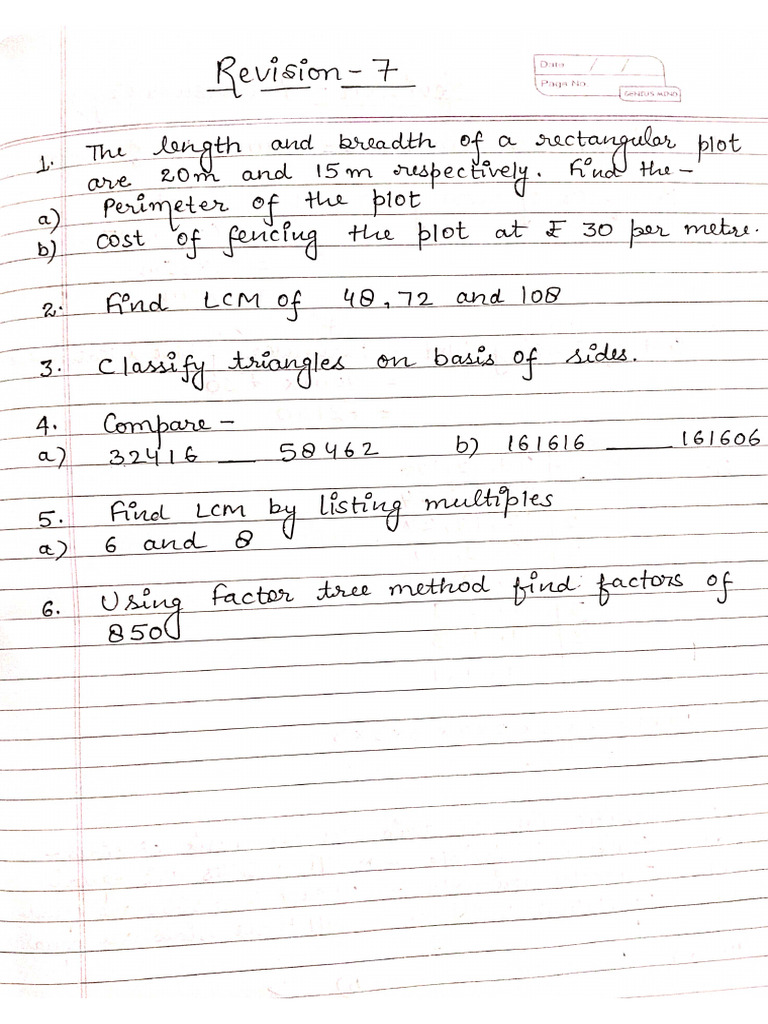 Revision - 7
Date / /
Page No
GENIUS MIND
1. The length and breadth of a rectangular plot
are 20m and 15m respectively. Find the -
a) Perimeter of the plot
b) cost of fencing the plot at ₹ 30 per metre.
2. Find LCM of 48, 72 and 108
3. Classify triangles on basis of sides.
4. Compare -
a) 32416 __ 58462 b) 161616 ___ 161606
5. Find LCM by listing multiples
a) 6 and 8
6. Using factor tree method find factors of
850